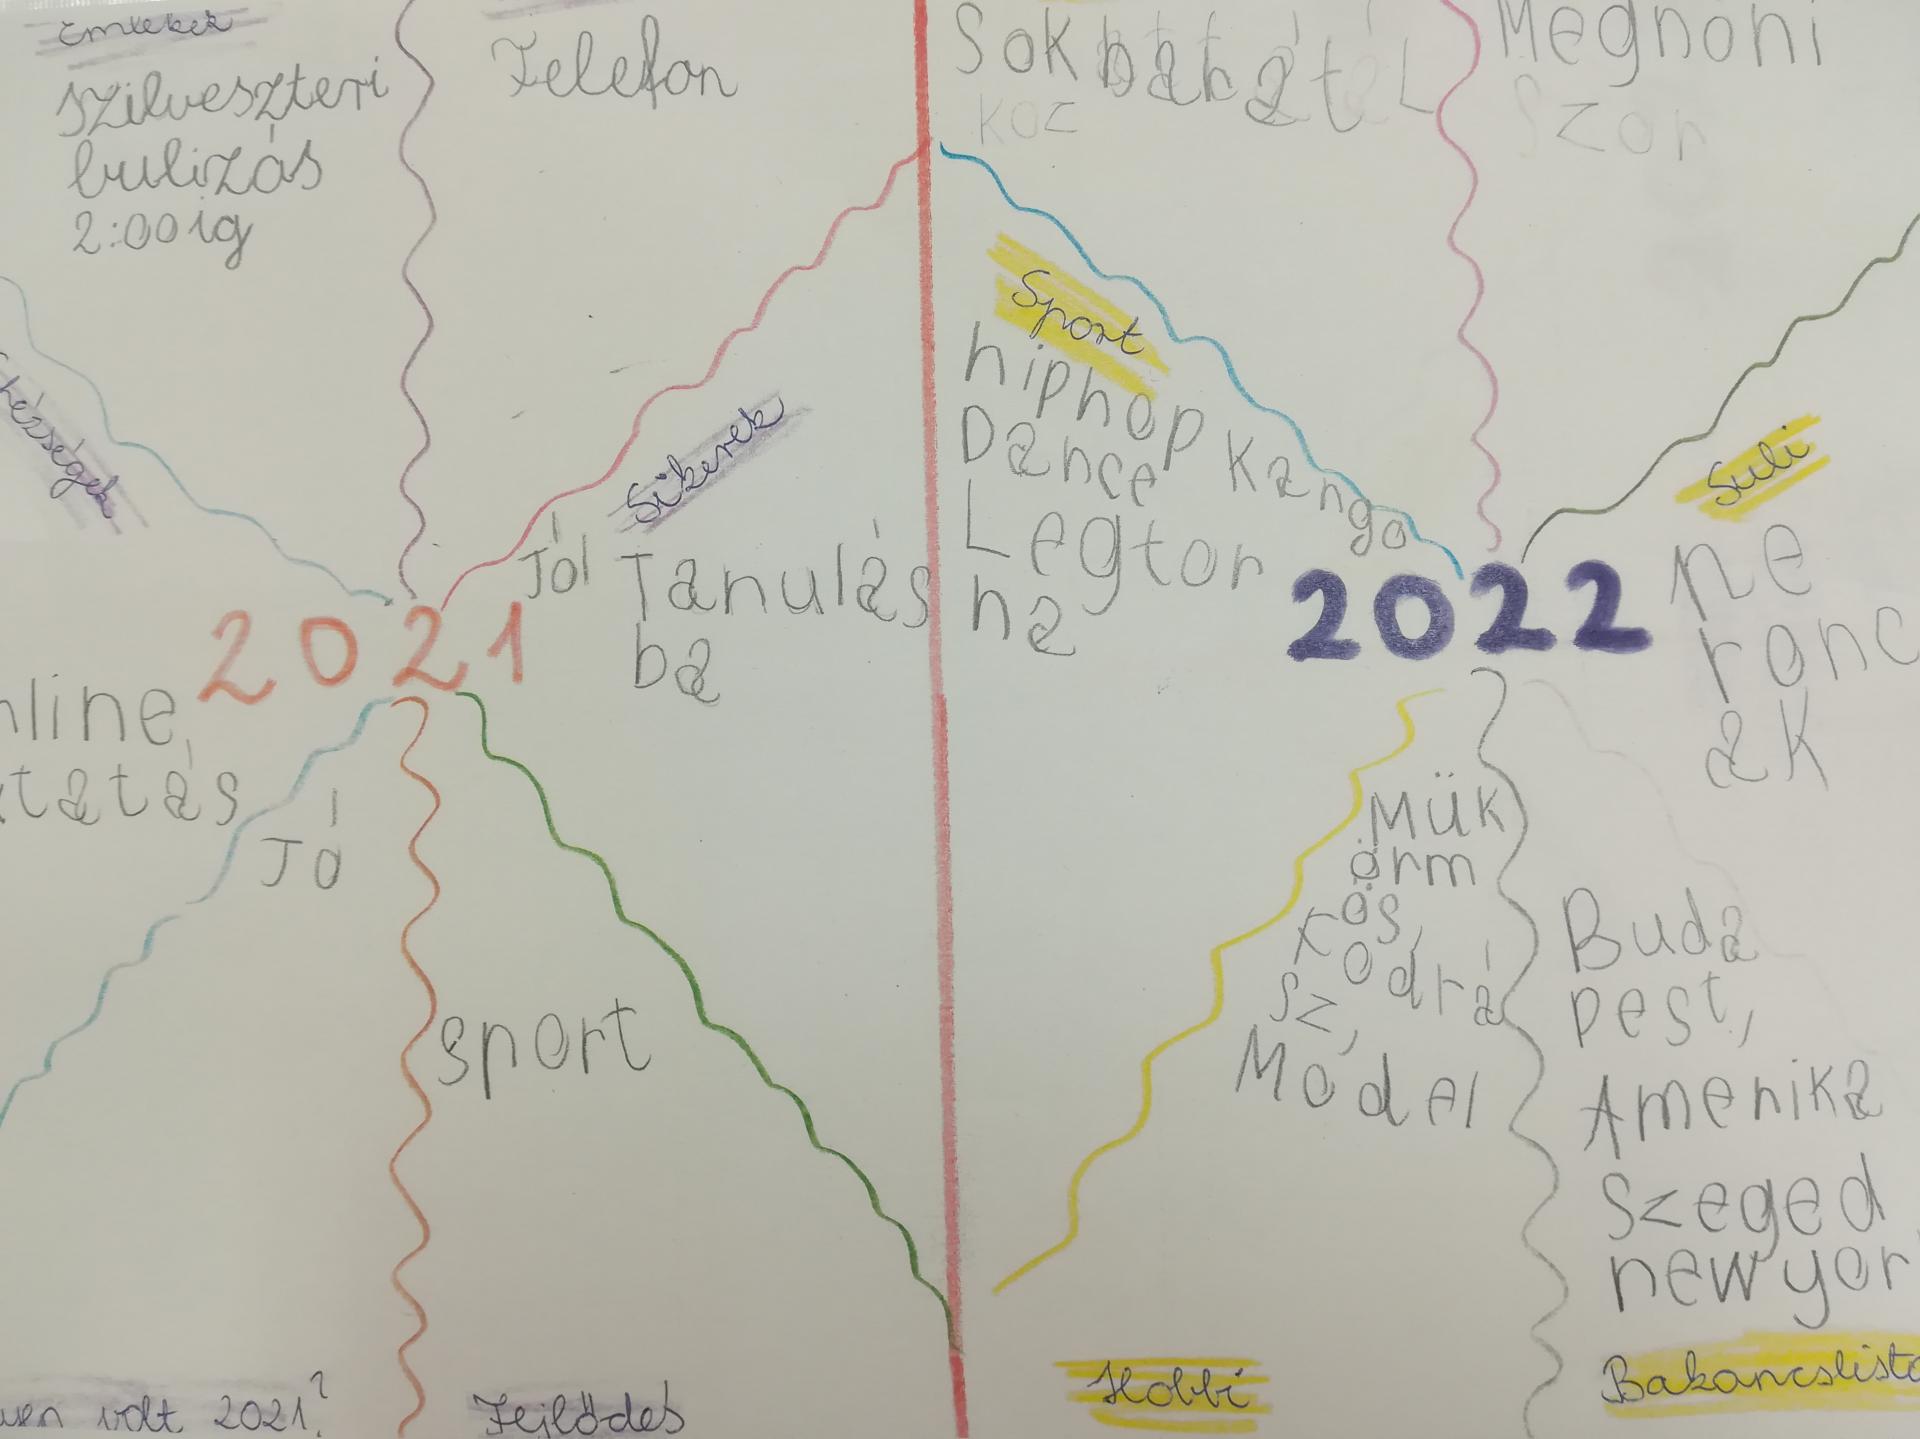 Emlékek
Szilveszteri
bulizás
2:00ig
Telefon
Sok barát
koz
Megnőni
Szor
Sikerek
Jól Tanulás
ba
Sport
hiphop
Dance Kango
Legtor
na
Suli
ne
ronc
ak
2021
2022
nline,
tatás
Jó
sport
Mük
örm
ös,
rodrá
sz,
Módel
Buda
pest,
Amenika
Szeged
newyor
volt 2021?
Fejlődés
Hobbi
Bakancslista